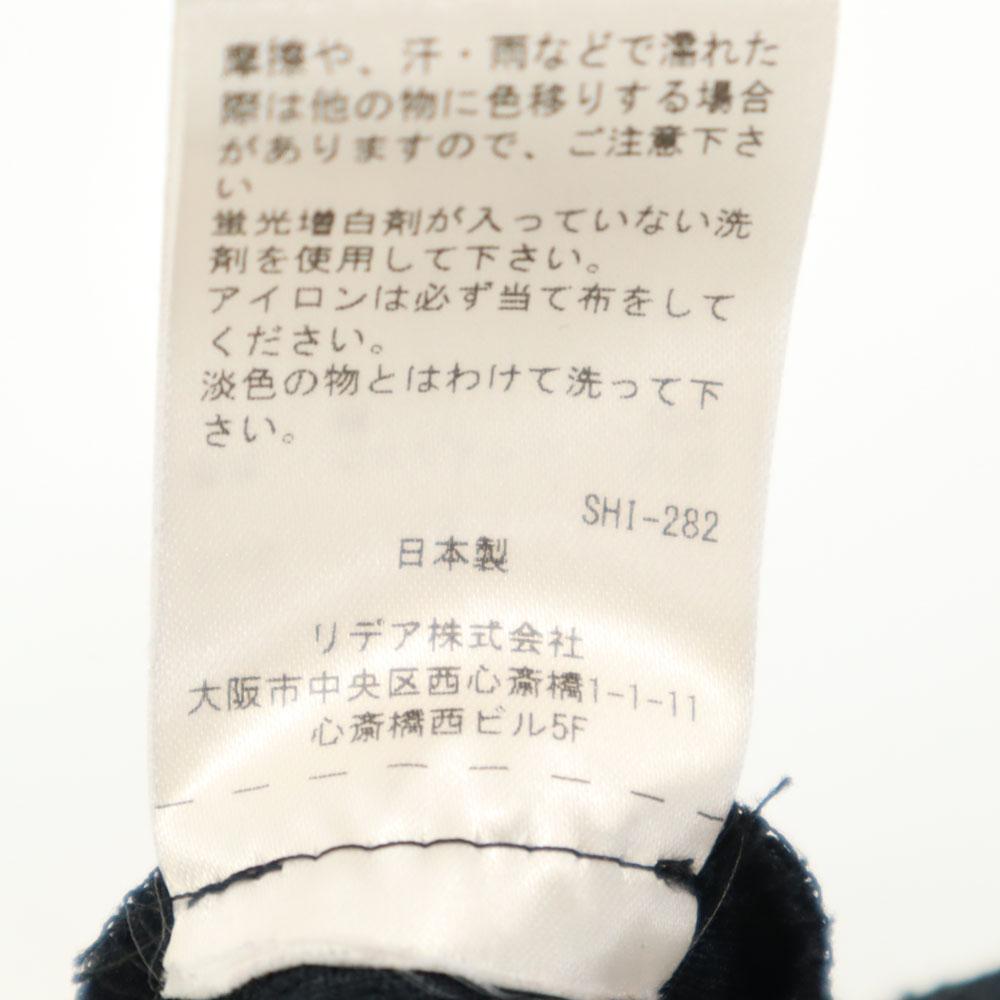 摩擦や、汗・雨などで濡れた
際は他の物に色移りする場合
がありますので、ご注意下さ
い
蛍光増白剤が入っていない洗
剤を使用して下さい。
アイロンは必ず当て布をして
ください。
淡色の物とはわけて洗って下
さい。
SHI-282
日本製
リデア株式会社
大阪市中央区西心斎橋1-1-11
心斎橋西ビル5F